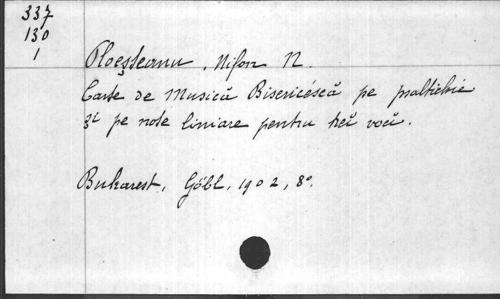 337
130
1
Ploeşteanu, Nifon N.
Carte de Musică Bisericéscă pe psaltichie
şi pe note liniare pentru treĭ vocĭ.
Bukarest, Göbl, 1902, 8º.